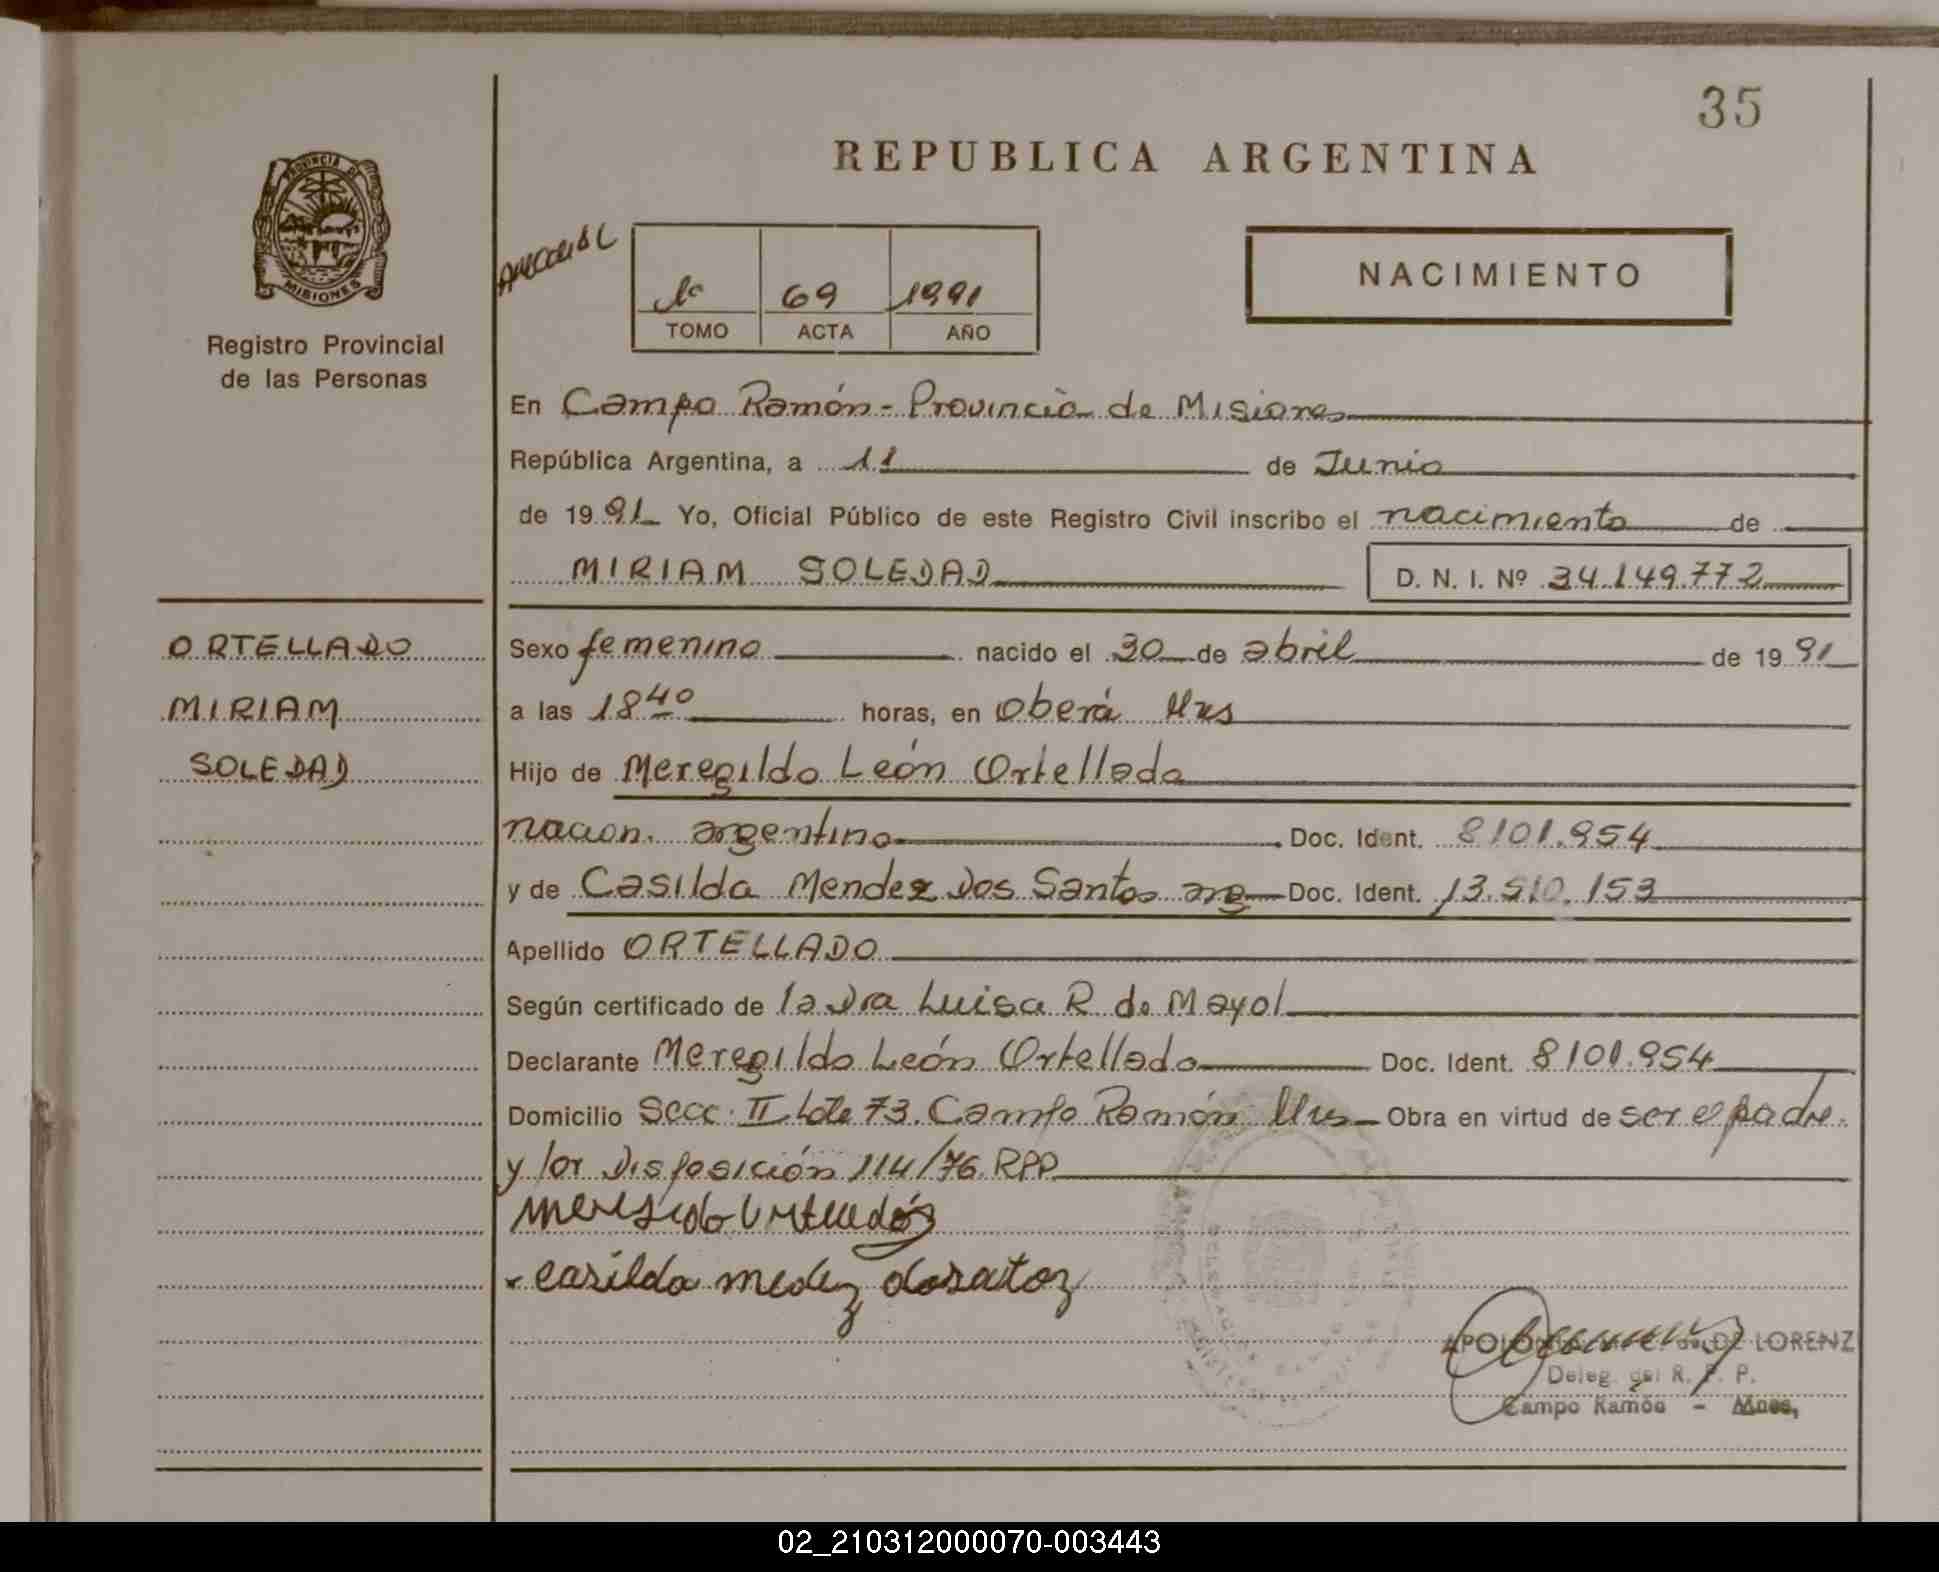 35
REPUBLICA ARGENTINA
PROVINCIA DE
MISIONES
Registro Provincial
de las Personas
1º 69 1991
TOMO ACTA AÑO
NACIMIENTO
En Campo Ramón - Provincia de Misiones
República Argentina, a 11 de Junio
de 1991 Yo, Oficial Público de este Registro Civil inscribo el nacimiento de
MIRIAM SOLEDAD D. N. I. Nº 34.149.772
ORTELLADO
MIRIAM
SOLEDAD
Sexo femenino nacido el 30 de abril de 1991
a las 18 40 horas, en Oberá Mns
Hijo de Meregildo León Ortellado
nacion. argentino Doc. Ident. 8101.954
y de Casilda Mendez Dos Santos arg Doc. Ident. 13.510.153
Apellido ORTELLADO
Según certificado de la Dra Luisa R de Mayol
Declarante Meregildo León Ortellado Doc. Ident. 8101.954
Domicilio Secc. II Lote 73. Campo Ramón Mns Obra en virtud de ser el padre.
y por Disposición 114/76 RPP
casilda medez dosatoz
DE LORENZ
Deleg. del R. P. P.
Campo Ramón - Mnes,
02_210312000070-003443